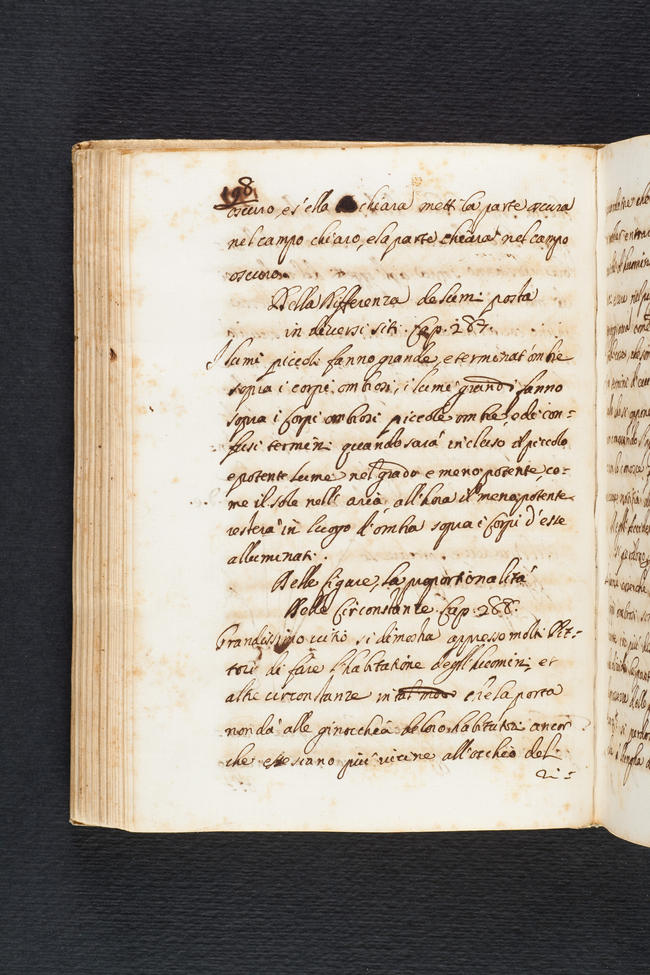 198.
oscuro, e s'ella chiara mett. la parte oscura
nel campo chiaro, e la parte chiara nel campo
oscuro.
Della Differenza de lumi posta
in diversi siti. Cap. 287.
I lumi piccoli fanno grande, e terminat' ombre
sopra i corpi ombrosi, i lumi grandi fanno
sopra i Corpi ombrosi piccole ombre, e di con=
fusi termini quando sarà incluso il piccolo
e potente lume nel grado e meno potente, co=
me il sole nell' aria all' hora il meno potente
resterà in luogo d' ombra sopra i Corpi d' esse
alluminati.
Delle figure, la proportionalità
Delle Circonstante. Cap. 288.
Grandissimo vitio si dimostra appresso molti Pit=
tori di fare l' habitatione degli huomini, et
altre circonstanze in che la porta
non da alle ginocchia de loro habitatori ancor
che esse siano più vicine all' occhio del